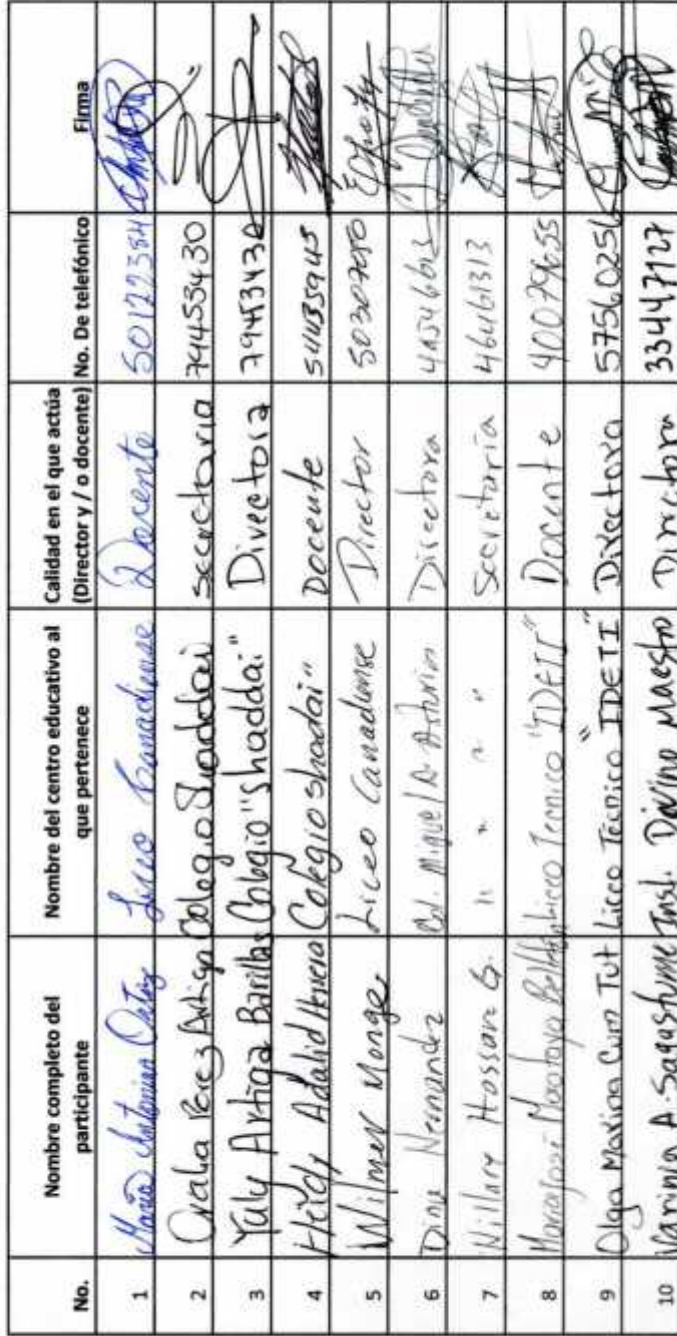 No. Nombre completo del participante Nombre del centro educativo al que pertenece Calidad en el que actúa (Director y / o docente) No. De telefónico Firma
1 Maria Antonina Ortiz Liceo Canadiense Docente 50122384
2 Oralia Perez Artiga Colegio Shaddai secretaria 79453430
3 Yuly Artiga Barillas Colegio "Shaddai" Directora 79453430
4 Heidy Adalid Docente 54435945
5 Wilmer Monge Liceo Canadiense Director 50307080
6 Dina Hernandez Col. Miguel A. Asturias Directora
7 Hillary Hossan G. " " " " Secretaria 46461313
8 Liceo Tecnico "IDETI" Docente 40079655
9 Olga Marina Cum Tut Liceo Técnico "IDETI" Directora 57560256
10 A. Sagastume Inst. Divino Maestro Directora 33447127